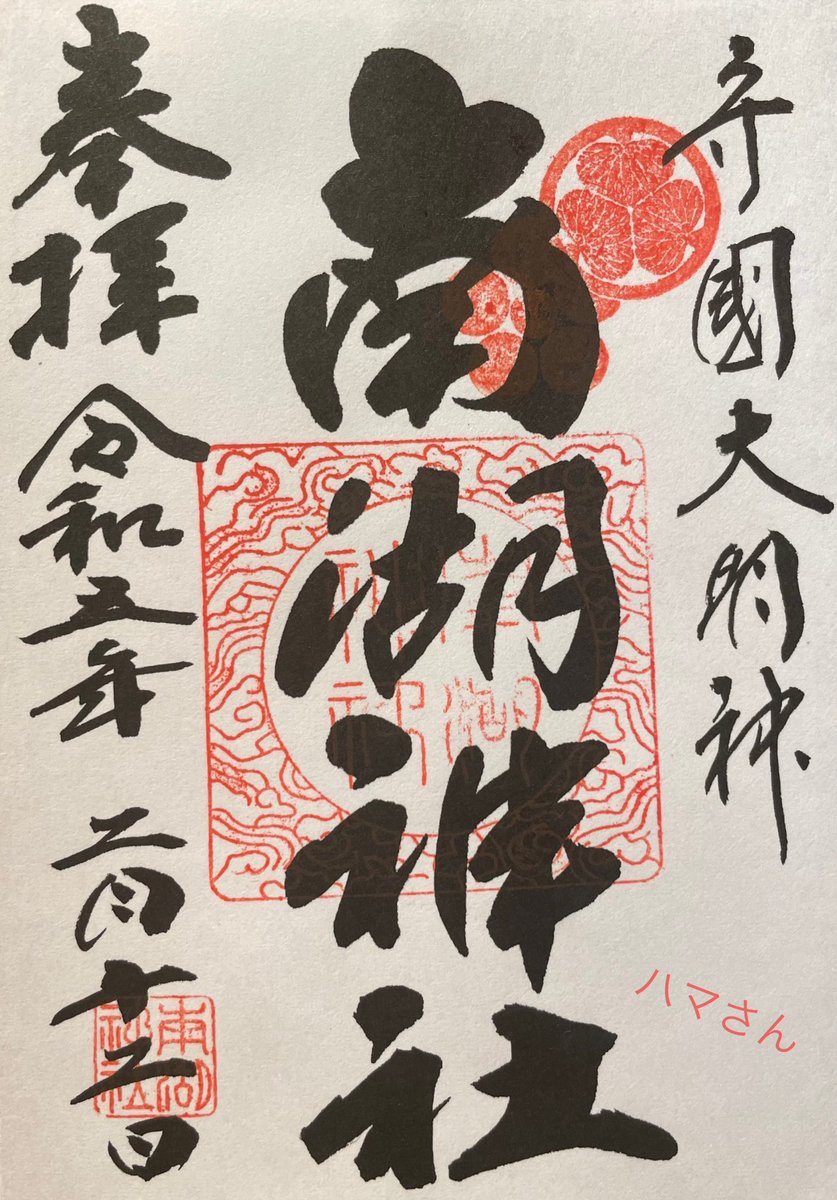 守國大明神
南湖神社
奉拝
令和五年
二月十二日
南湖
神社
南湖
神社
ハマさん